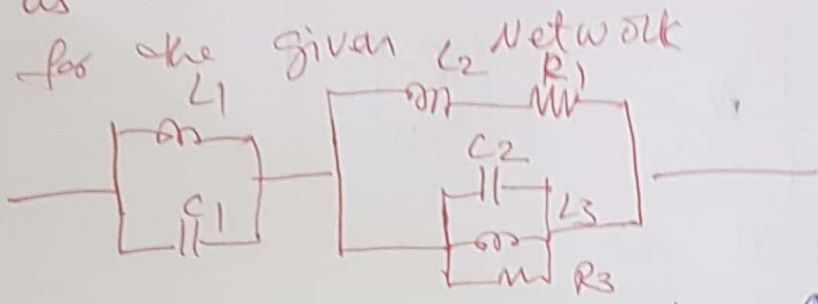 for the given Network
L2 R1
L1
C2
C1 L3
R3